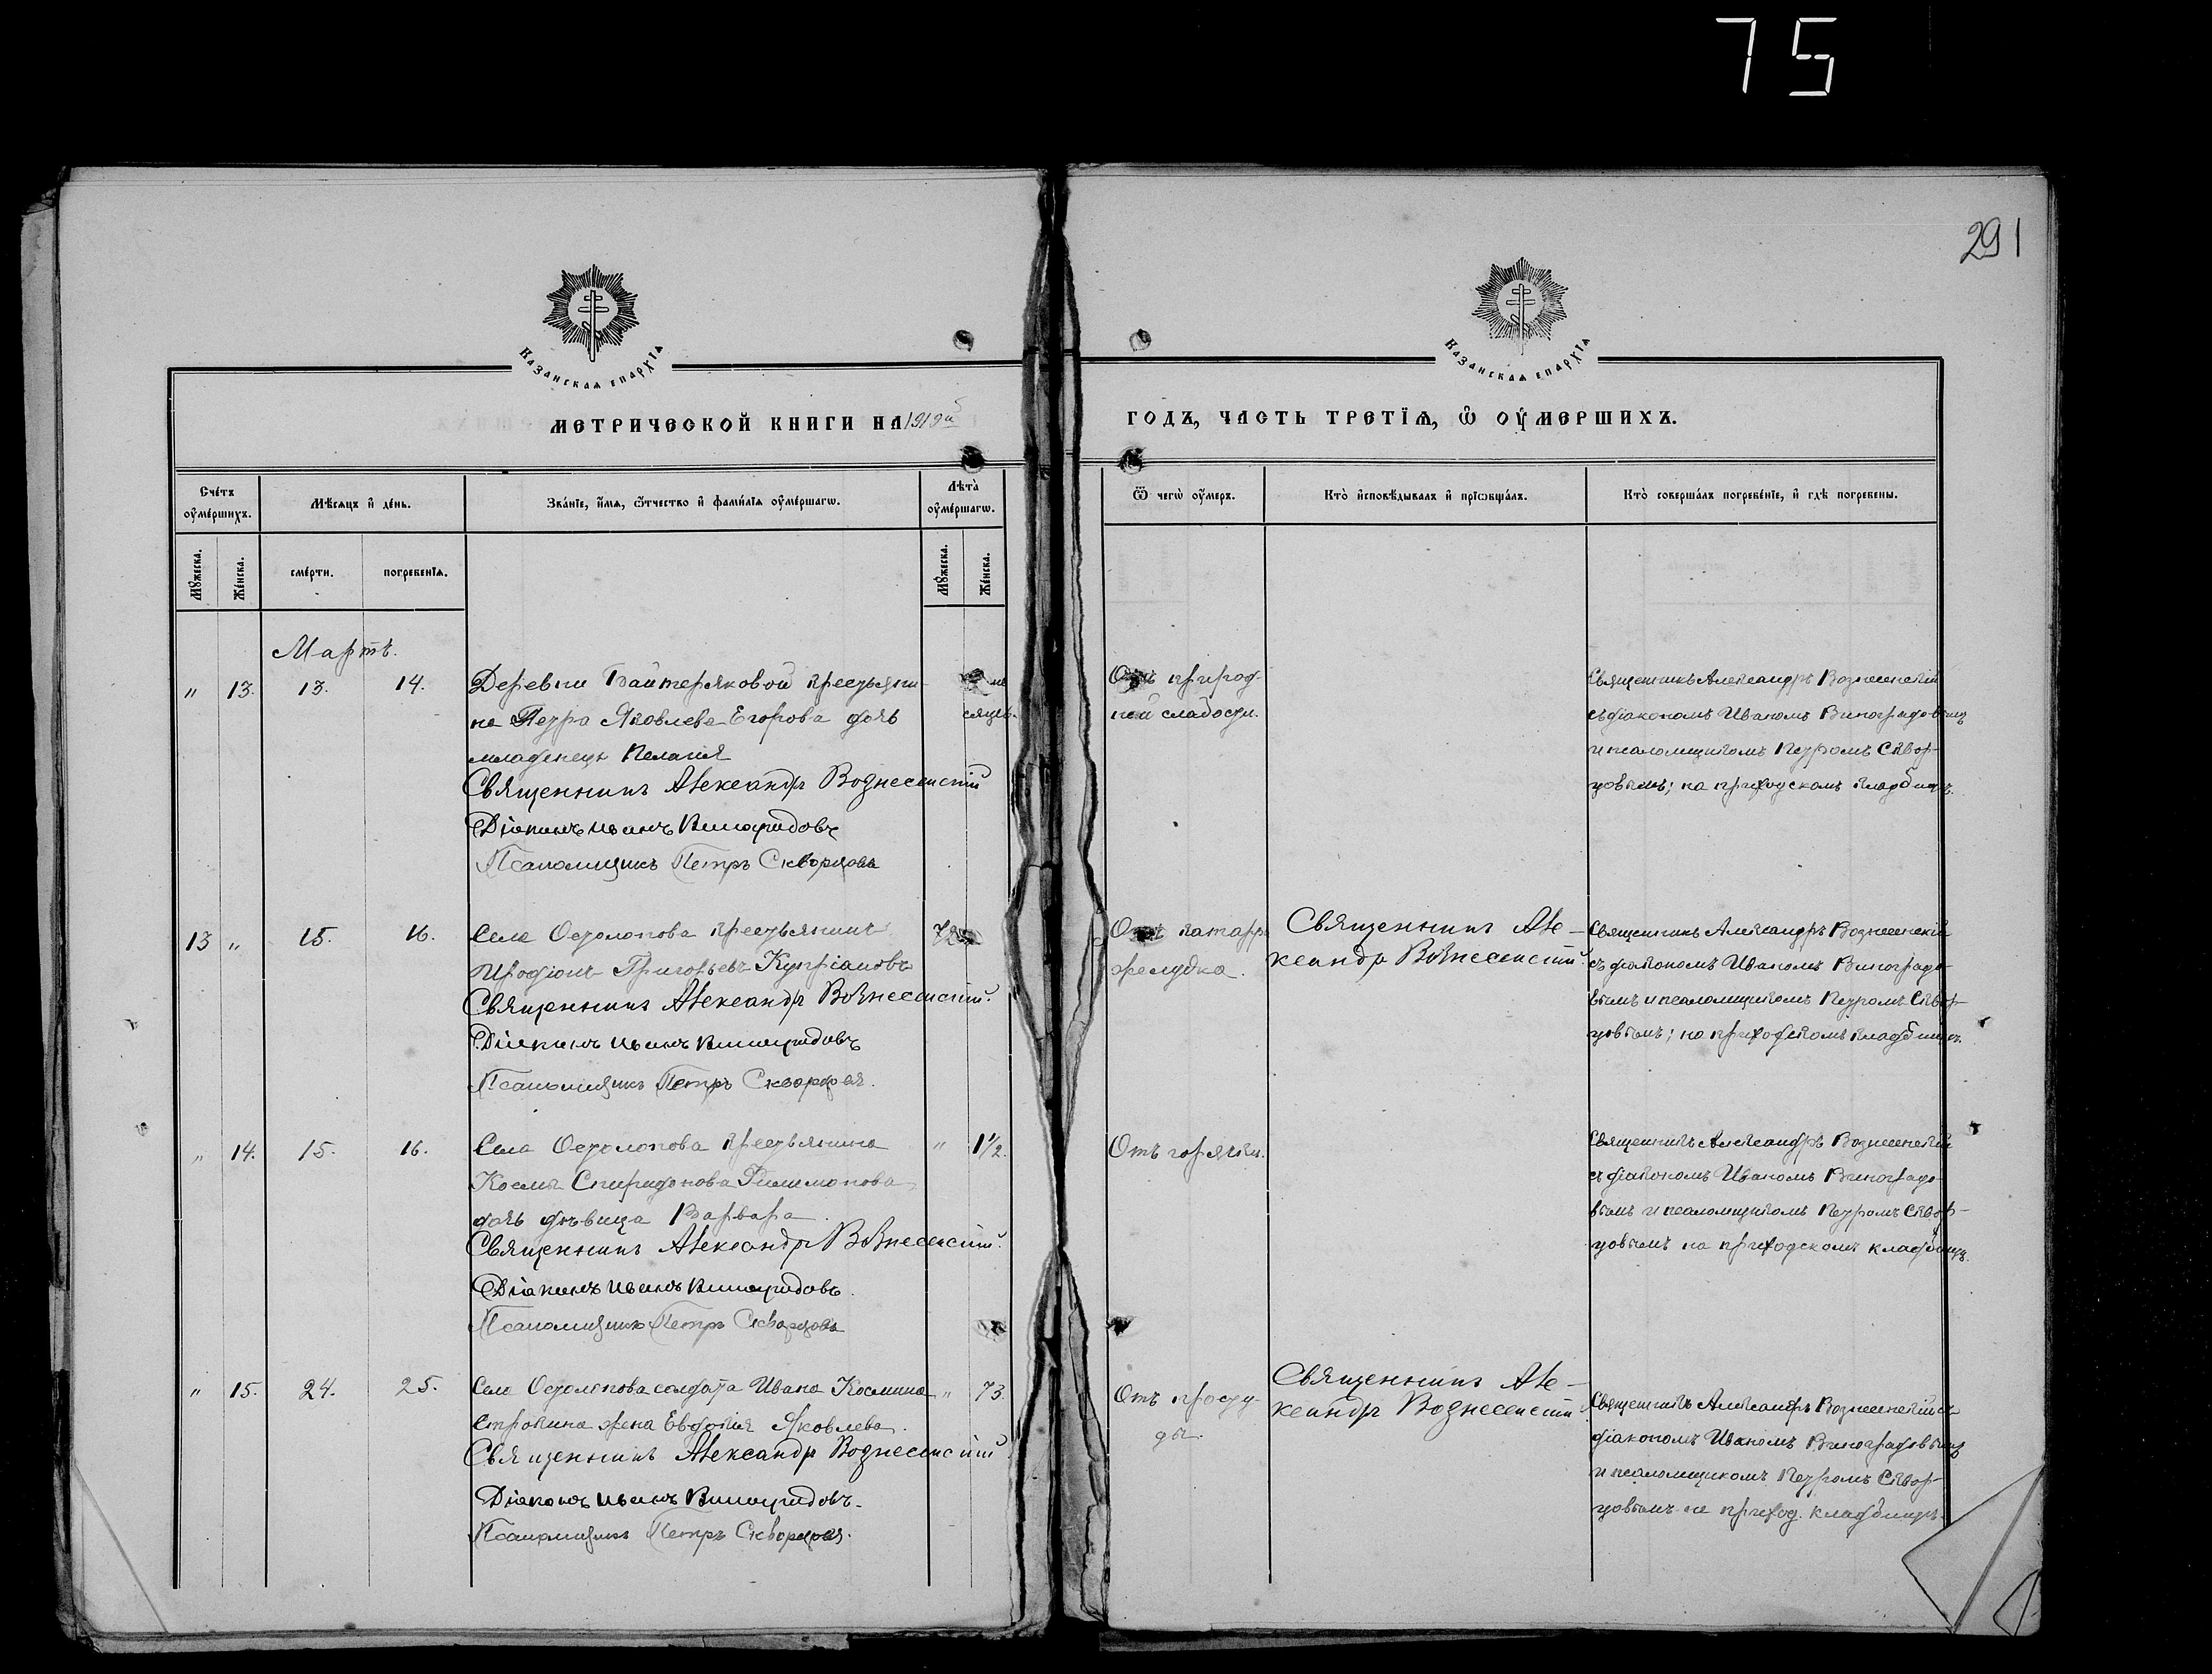 75
291
Казанская епархїѧ
Казанская епархїѧ
МЕТРИЧЕСКОЙ КНИГИ НА 1919й
ГОДЪ, ЧАСТЬ ТРЕТЇѦ, Ѽ ОУМЕРШИХЪ.
Сче́тъ оумершихъ.
Мѣсѧцъ и день.
Званїе, имѧ, ѿтчество и фамилїѧ оумершагѡ.
Лѣта оумершагѡ.
Ѿ чегѡ оумеръ.
Кто исповѣдывалъ и прїѡбщалъ.
Кто совершалъ погребенїе, и гдѣ погребены.
Мꙋжеска.
Женска.
смерти.
погребенїѧ.
Мꙋжеска.
Женска.
Мартъ.
" 13. 13. 14.
Деревни Байтеряковой крестьяни-
на Петра Яковлева Егорова дочь
младенецъ Пелагия
Священникъ Александръ Вознесенскій
Діаконъ Иванъ Виноградовъ
Псаломщикъ Петръ Скворцовъ
мѣ
сяцевъ.
Отъ природ-
ной слабости.
Священникъ Александръ Вознесенскій
съ діакономъ Иваномъ Виноградовымъ
и псаломщикомъ Петромъ Сквор-
цовымъ; на приходскомъ кладбищѣ.
13 " 15. 16.
Села Остолопова крестьянинъ
Иродіонъ Григорьевъ Купріановъ
Священникъ Александръ Вознесенскій.
Діаконъ Иванъ Виноградовъ
Псаломщикъ Петръ Скворцовъ.
72
Отъ катарр
желудка.
Священникъ Але-
ксандръ Вознесенскій.
Священникъ Александръ Вознесенскій
съ діакономъ Иваномъ Виноградо-
вымъ и псаломщикомъ Петромъ Сквор-
цовымъ; на приходскомъ кладбищѣ.
" 14. 15. 16.
Села Остолопова крестьянина
Космы Спиридонова Филимонова
дочь дѣвица Варвара.
Священникъ Александръ Вознесенскій.
Діаконъ Иванъ Виноградовъ.
Псаломщикъ Петръ Скворцовъ
" 1 1/2.
Отъ горячки.
Священникъ Александръ Вознесенскій
съ діакономъ Иваномъ Виноградо-
вымъ и псаломщикомъ Петромъ Сквор-
цовымъ на приходскомъ кладбищѣ.
" 15. 24. 25.
Села Остолопова солдата Ивана Космина
жена Евдокія Яковлева.
Священникъ Александръ Вознесенскій
Діаконъ Иванъ Виноградовъ.
Псаломщикъ Петръ Скворцовъ.
" 73.
Отъ просту-
ды.
Священникъ Але-
ксандръ Вознесенскій.
Священникъ Александръ Вознесенскій съ
діакономъ Иваномъ Виноградовымъ
и псаломщикомъ Петромъ Сквор-
цовымъ на приход. кладбищѣ.